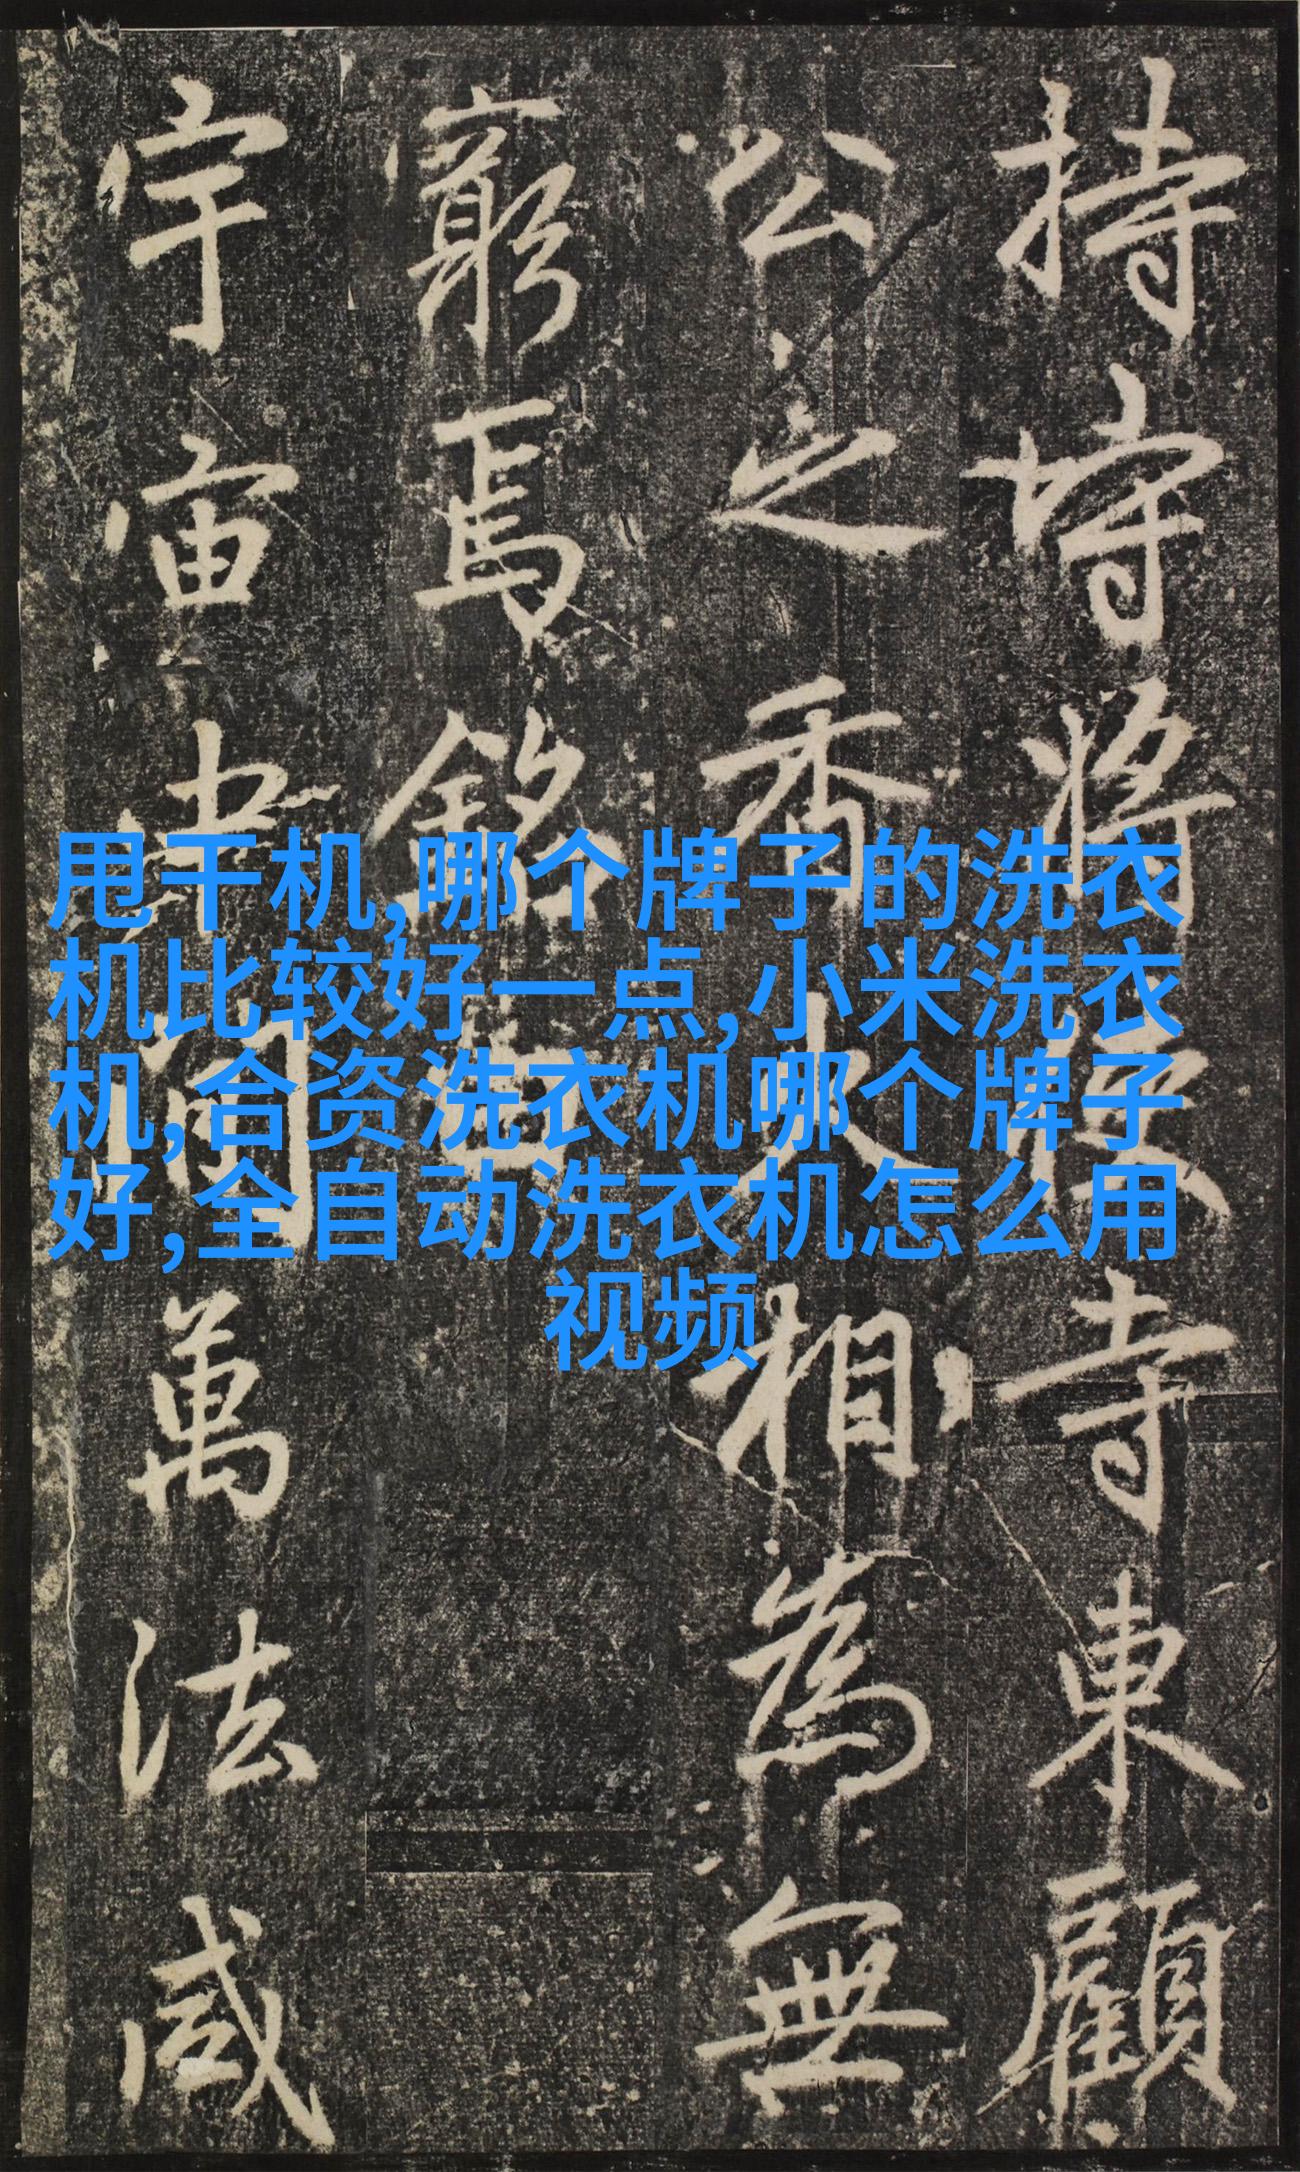 甩干机,哪个牌子的洗衣
机比较好一点,小米洗衣
机,合资洗衣机哪个牌子
好,全自动洗衣机怎么用
视频
持將寺東顧
公之香火相為無
窮焉銘曰
宇宙萬法